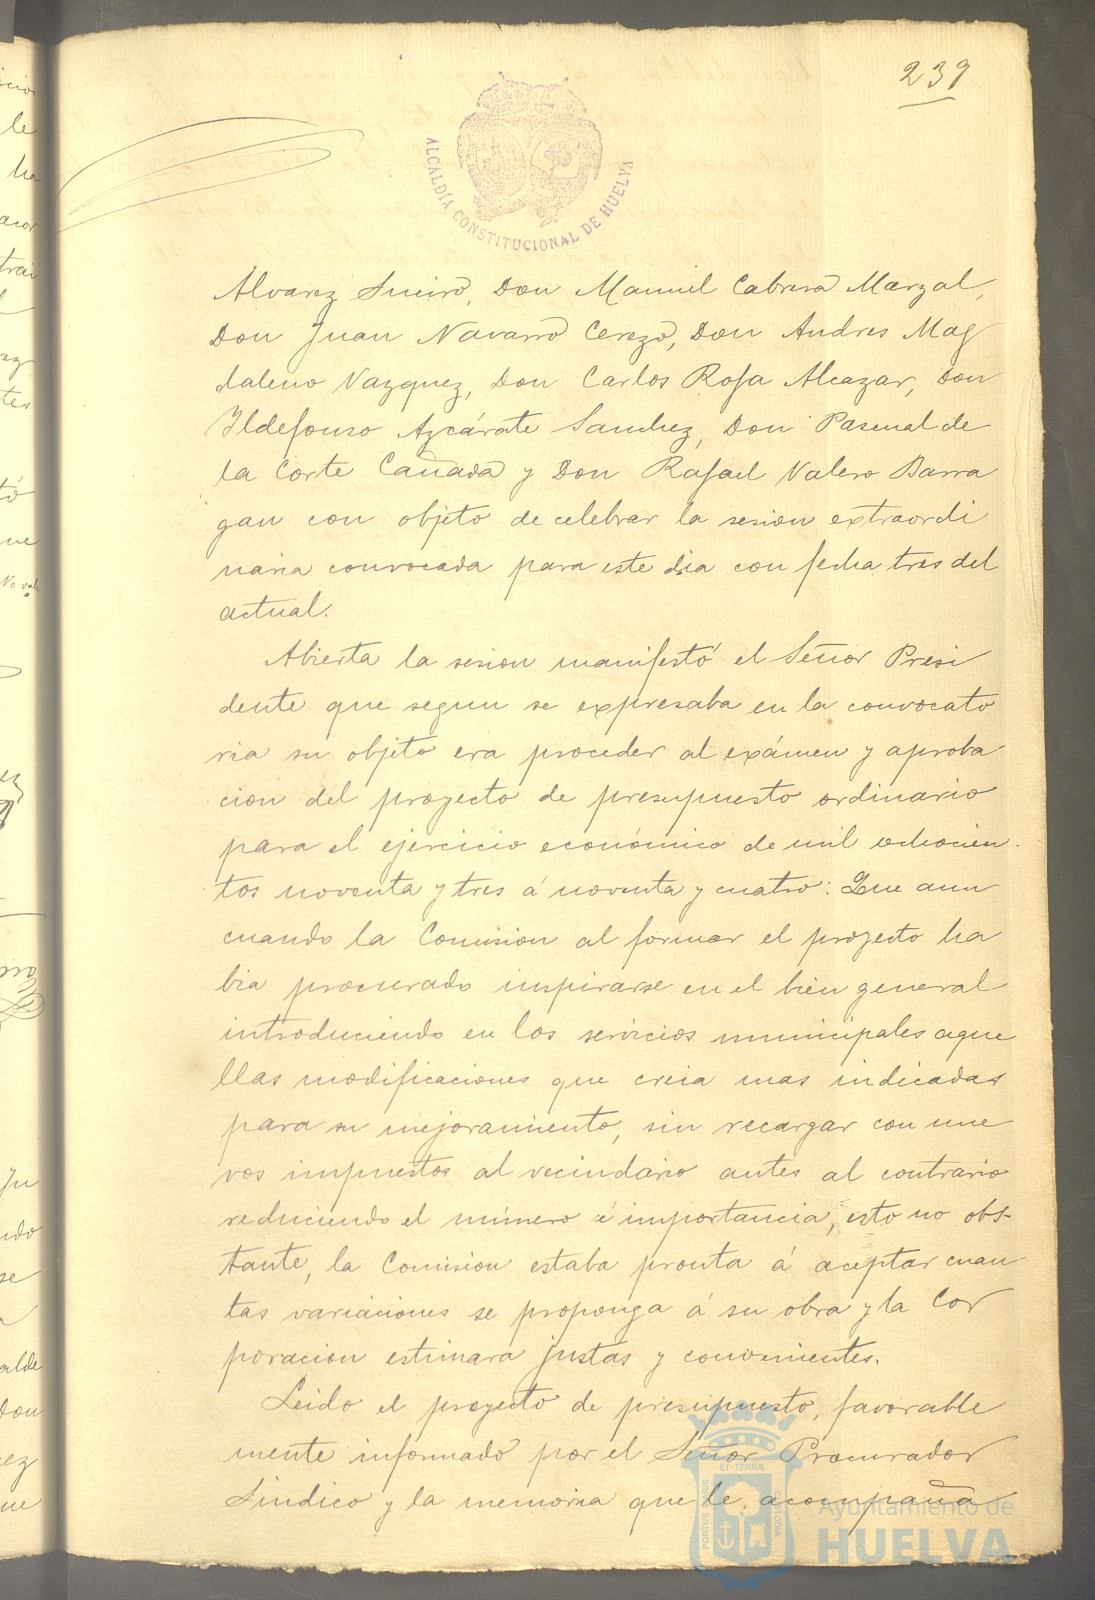 239
ALCALDÍA CONSTITUCIONAL DE HUELVA
Alvarez Sueiro, Don Manuel Cabrera Marzal,
Don Juan Navarro Cerezo, Don Andres Mag
daleno Vazquez, Don Carlos Rosa Alcazar, Don
Ildefonso Azcárate Sanchez, Don Pascual de
la Corte Cañada y Don Rafael Valero Barra
gan con objeto de celebrar la sesion extraordi
naria convocada para este dia con fecha tres del
actual.
Abierta la sesion manifestó el Señor Presi
dente que segun se expresaba en la convocato
ria su objeto era proceder al exámen y aproba
cion del proyecto de presupuesto ordinario
para el ejercicio económico de mil ochocien
tos noventa y tres á noventa y cuatro: Que aun
cuando la Comision al formar el proyecto ha
bia procurado inspirarse en el bien general
introduciendo en los servicios municipales aque
llas modificaciones que creia mas indicadas
para su mejoramiento, sin recargar con nue
vos impuestos al vecindario antes al contrario
reduciendo el número é importancia, esto no obs-
tante, la Comision estaba pronta á aceptar cuan
tas variaciones se proponga á su obra y la Cor
poracion estimara justas y convenientes.
Leido el proyecto de presupuesto, favorable
mente informado por el Señor Procurador
Sindico y la memoria que le acompaña
PORTUS MARIS ET TERRÆ CUSTODIA
Ayuntamiento de
HUELVA